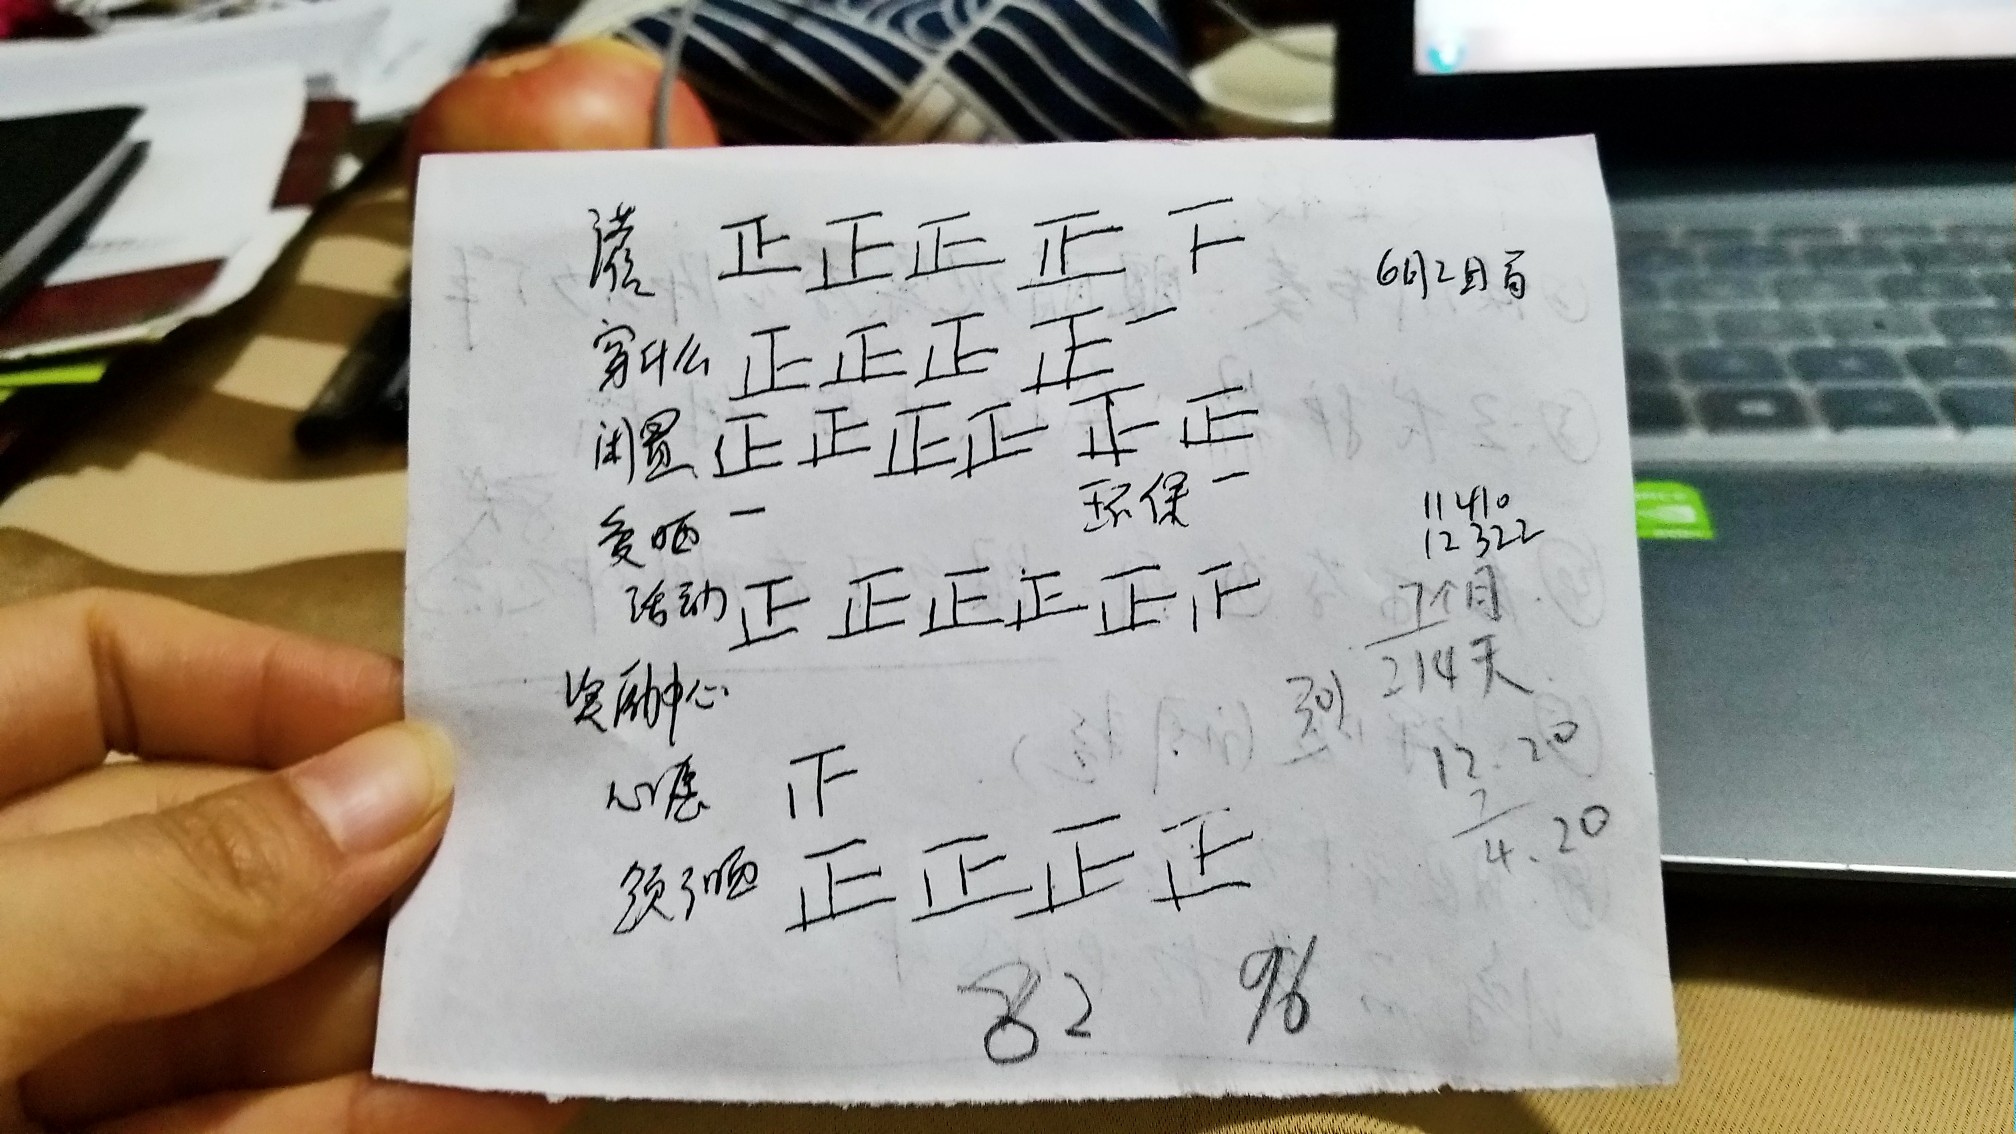 正正正正下
6月2日
穿什么 正正正正一
闲置 正正正正正正
爱晒 一 环保 一
11410
12322
活动 正正正正正
7个月
214天
奖励中心
到
12.20
心愿
4.20
正正正正
82 96